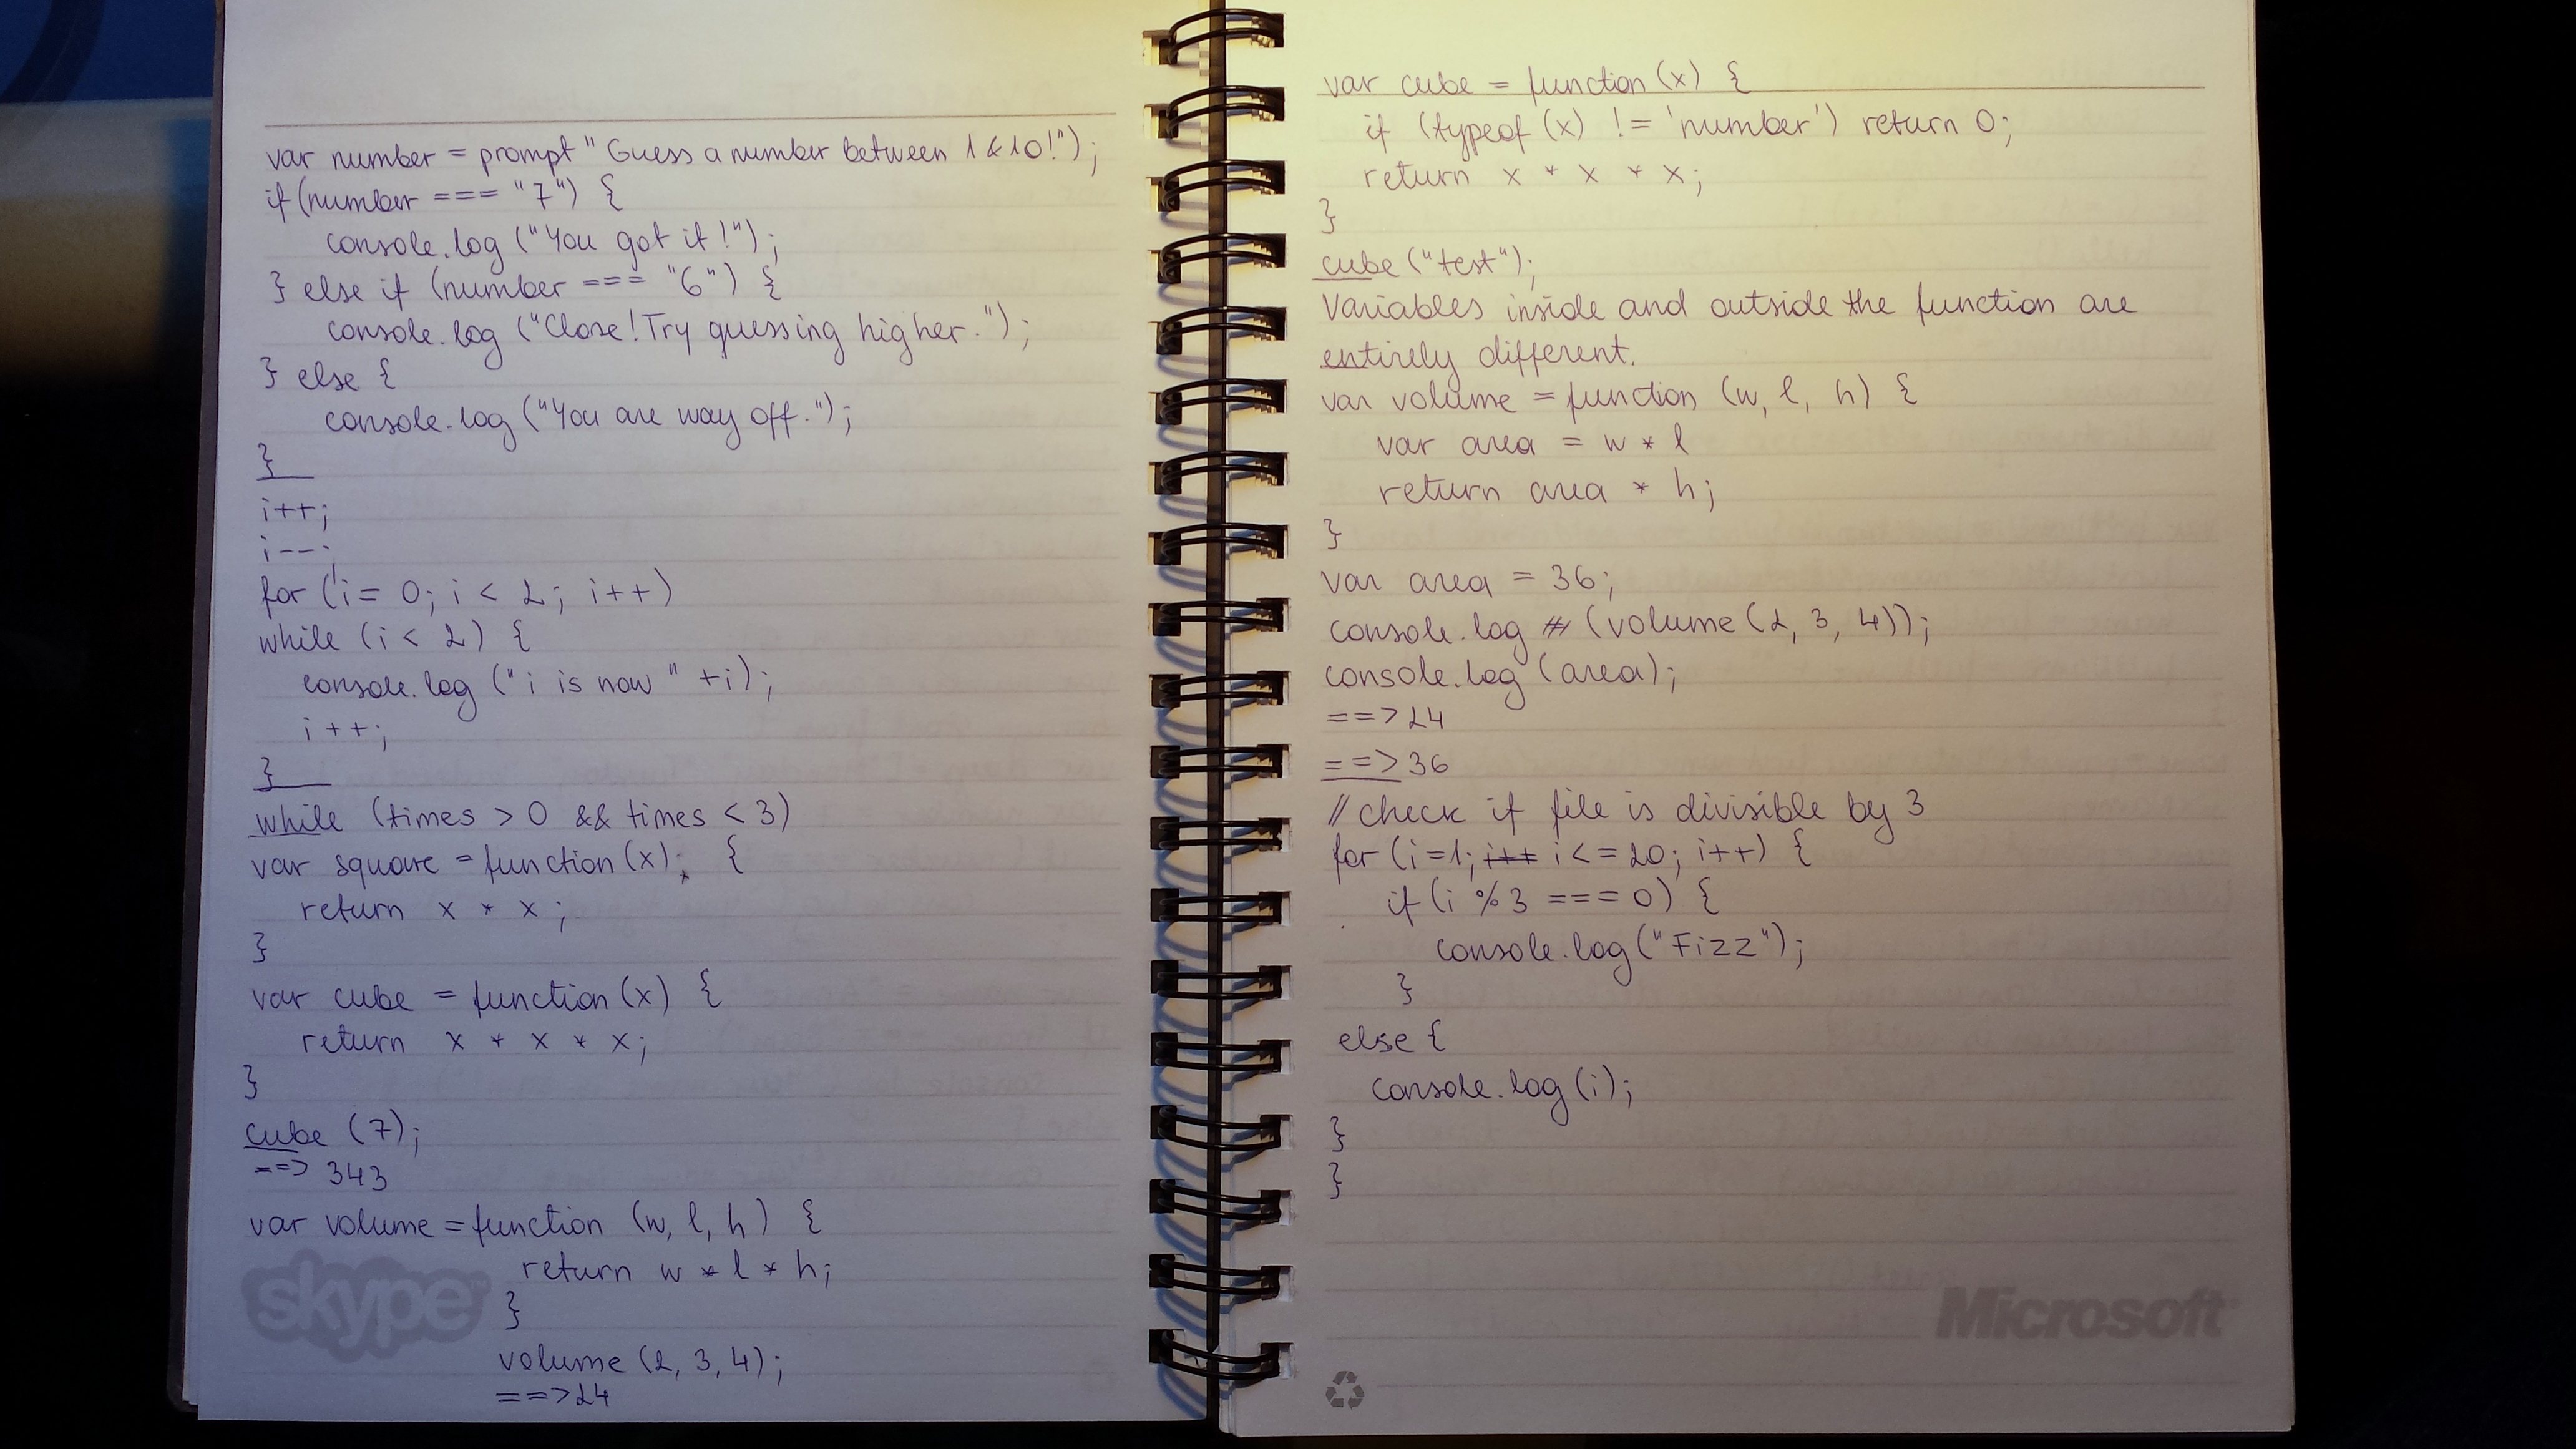 var number = prompt "Guess a number between 1 & 10!");
if (number === "7") {
console.log ("You got it!");
} else if (number === "6") {
console.log ("Close! Try guessing higher.");
} else {
console.log ("You are way off.");
}
i++;
i--;
for (i = 0; i < 2; i++)
while (i < 2) {
console.log ("i is now " +i);
i ++;
}
while (times > 0 && times < 3)
var square = function (x); {
return x * x;
}
var cube = function (x) {
return x * x * x;
}
cube (7);
==> 343
var volume = function (w, l, h) {
return w * l * h;
}
volume (2, 3, 4);
==> 24
skype
var cube = function (x) {
if (typeof (x) != 'number') return 0;
return x * x * x;
}
cube ("test");
Variables inside and outside the function are
entirely different.
var volume = function (w, l, h) {
var area = w * l
return area * h;
}
var area = 36;
console.log # (volume (2, 3, 4));
console.log (area);
==> 24
==> 36
// check if file is divisible by 3
for (i=1; i++ i<=20; i++) {
if (i %3 === 0) {
console.log ("Fizz");
}
else {
console.log (i);
}
}
Microsoft